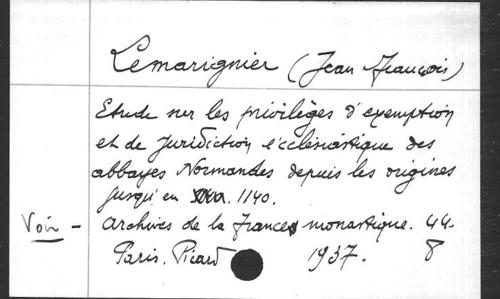 Lemarignier (Jean François)
Etude sur les privilèges d'exemption
et de Juridiction ecclésiastique des
abbayes Normandes depuis les origines
jusqu'en 1140.
Voir - Archives de la France monastique. 44.
Paris. Picard 1937. 8